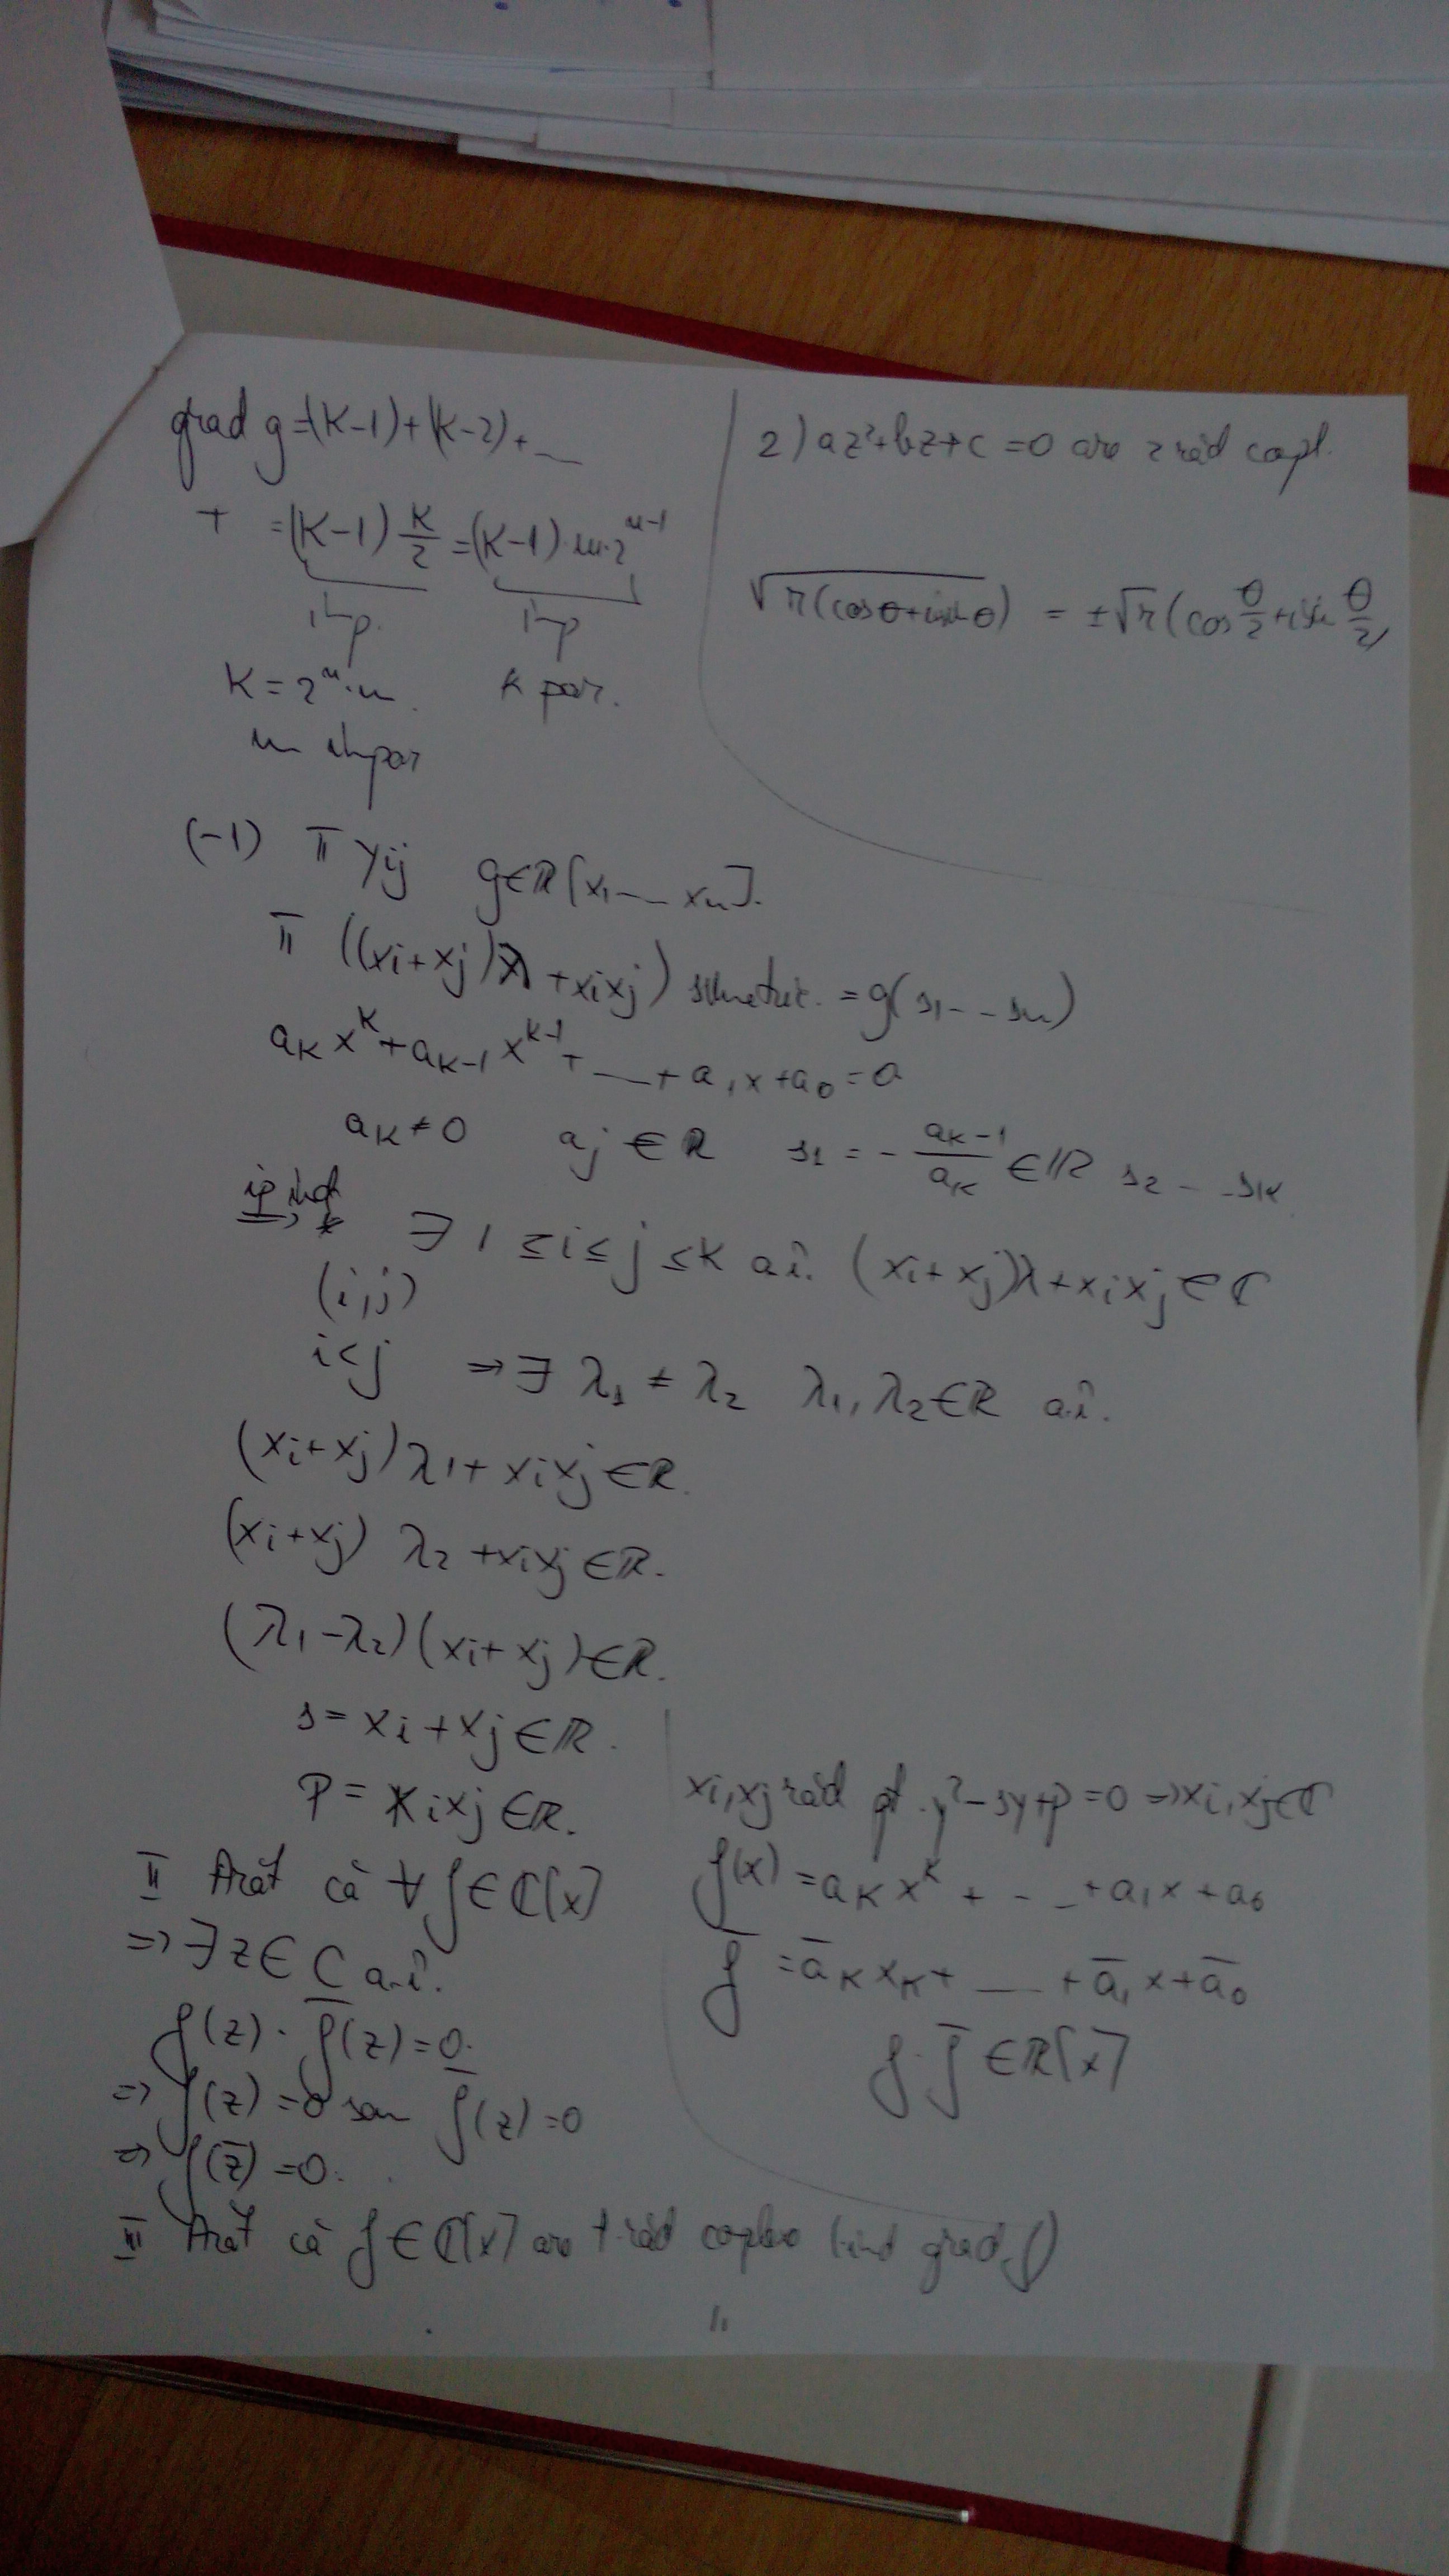 grad g=(K-1)+(K-2)+...
+ =(K-1) K/2 =(K-1)·m·2^{n-1}
imp. imp
K=2^n·m. K par.
m impar
2) az²+bz+c=0 are 2 răd compl.
√(r(cosθ+isinθ)) = ±√r(cos θ/2 + i sin θ/2)
(-1) Π yij g∈ℝ[x1...xn].
Π ((xi+xj)λ+xixj) simetric. = g(s1...sn)
aK x^K+aK-1 x^{K-1}+...+a1x+a0=0
aK≠0 aj∈ℝ s1=-aK-1/aK∈ℝ s2...sK
ip ind
⇒ ∃ 1≤i≤j≤K a.î. (xi+xj)λ+xixj∈ℂ
(i,j)
i<j ⇒∃ λ1≠λ2 λ1,λ2∈ℝ a.î.
(xi+xj)λ1+xixj∈ℝ.
(xi+xj) λ2+xixj∈ℝ.
(λ1-λ2)(xi+xj)∈ℝ.
s=xi+xj∈ℝ.
P=xixj∈ℝ.
xi,xj răd pt. y²-sy+p=0 ⇒xi,xj∈ℂ
II Arăt că ∀f∈ℂ[x]
⇒∃z∈ℂ a.î.
f(z)·f̄(z)=0.
⇒ f(z)=0 sau f̄(z)=0
⇒ f(z̄)=0.
f(x)=aKx^K+...+a1x+a0
f̄=āKxK+...+ā1x+ā0
f·f̄∈ℝ[x]
III Arăt că f∈ℂ[x] are răd complexe (ind grad f)